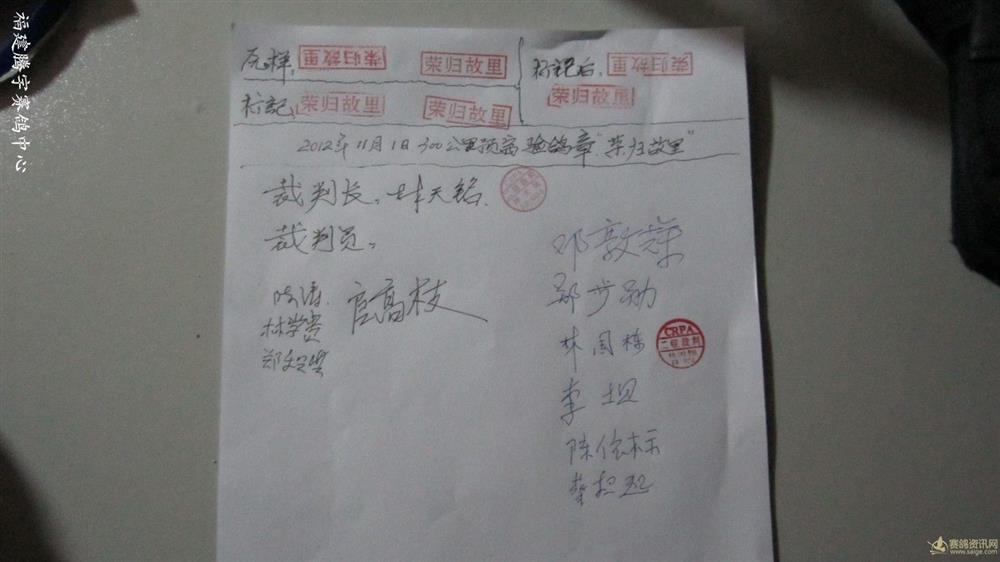 福建腾宇赛鸽中心
原样, 荣归故里 荣归故里
标记后, 荣归故里
荣归故里
标记, 荣归故里 荣归故里
2012年11月1日300公里预赛验鸽章"荣归故里"
裁判长, 林天铭.
裁判员,
官高枝
林学贵
邓敦荣
郑步勋
林国栋
CRPA
二级裁判
李坦
陈依标
赛鸽资讯网
www.saige.com